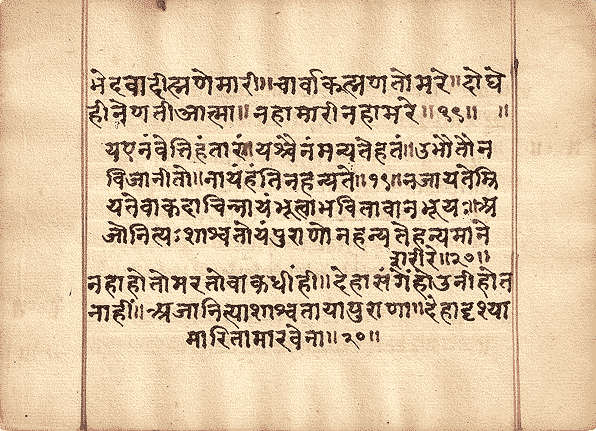 भेदवादी ह्मणे मारी॥ चार्वाक ह्मणतो मरे॥ दोघे
ही नेणती आत्मा॥ नहा मारी नहा मरे॥१९॥ ॥
यएनंवेत्तिहंतारंयश्चैनंमन्यतेहतं॥उभौतौन
विजानीतो॥नायंहंतिनहन्यते॥१९॥नजायतेम्रि
यतेवाकदाचिन्नायंभूत्वाभवितावानभूयः॥अ
जोनित्यःशाश्वतोयंपुराणोनहन्यतेहन्यमाने
शरीरे॥२०॥
नहा होतो मरतो वा कधीं ही॥ देहासंगें होउनी होत
नाहीं॥ अजा नित्या शाश्वता या पुराणा॥ देहा दृश्या
मारितां मारवेना॥२०॥